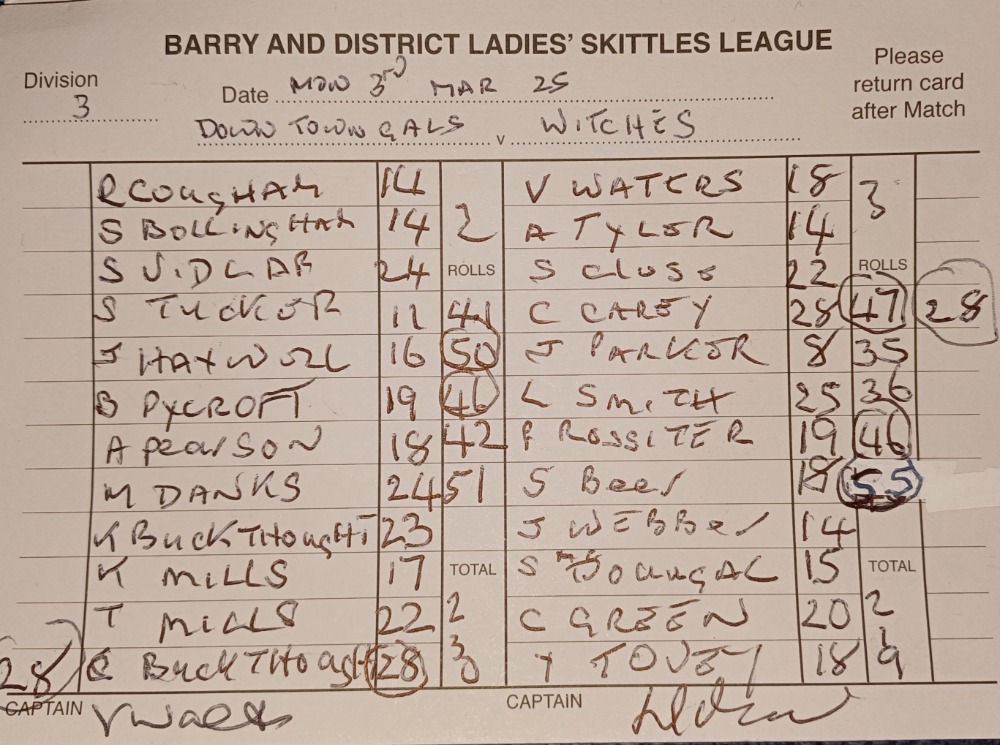 BARRY AND DISTRICT LADIES' SKITTLES LEAGUE
Division 3
Date MON 3rd MAR 25
Please return card after Match
DOWN TOWN GALS v WITCHES
R COUGHAM 14 V WATERS 18
S BOLLINGHAM 14 2 A TYLER 14 3
S VIDLAR 24 ROLLS S CLOSE 22 ROLLS
S TUCKER 11 41 C CAREY 28 47 28
J HAXWELL 16 50 J PARKER 8 35
B PYCROFT 19 46 L SMITH 25 36
A PEARSON 18 42 P ROSSITER 19 46
M DANKS 24 51 S Beer 18 55
K BUCKTHOUGHT 23 J WEBBER 14
K MILLS 17 TOTAL S 15 TOTAL
T MILLS 22 2 C GREEN 20 2
28 BUCKTHOUGHT 28 3 0 Y TOVEY 18 1 9
CAPTAIN CAPTAIN